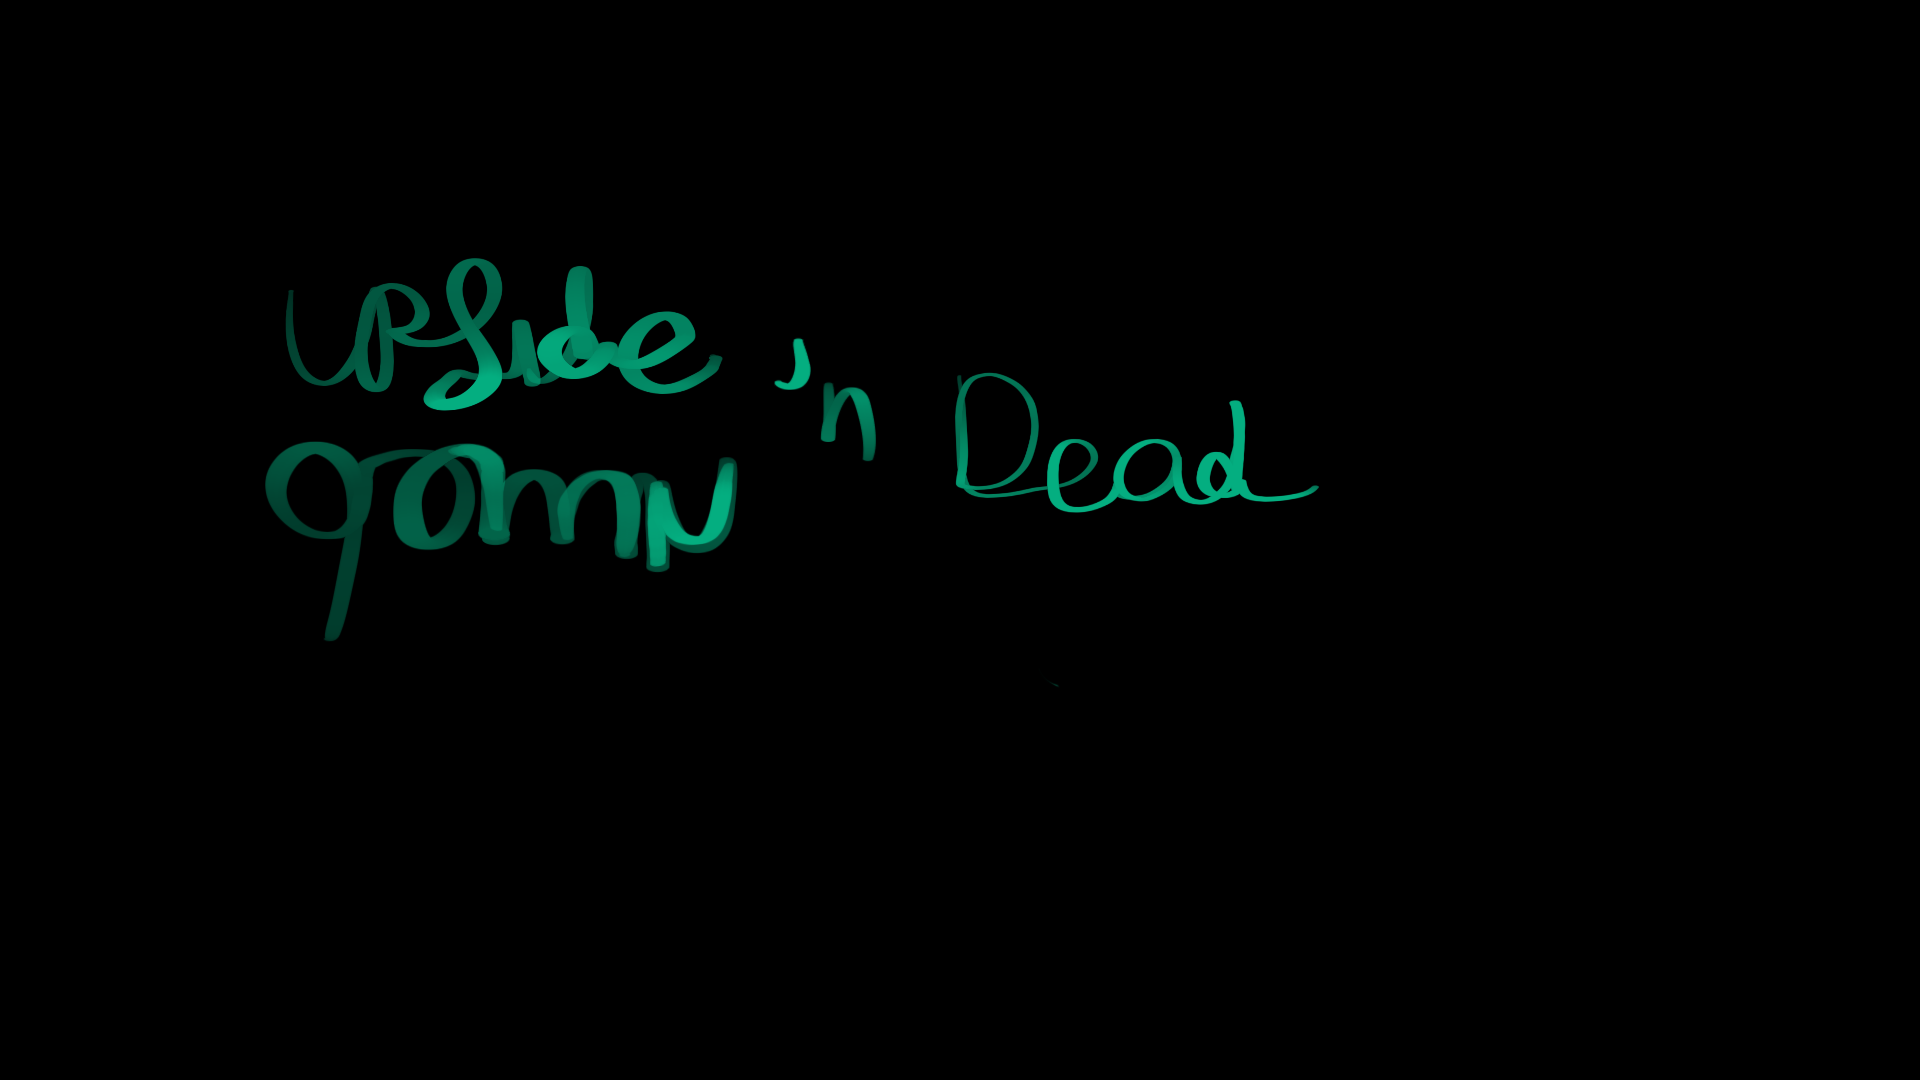 upside
qomu
'n Dead